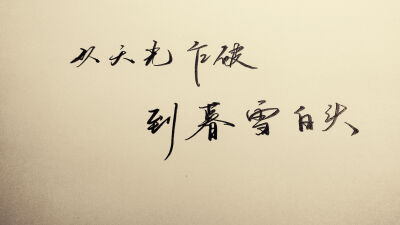 从天光乍破
到暮雪白头